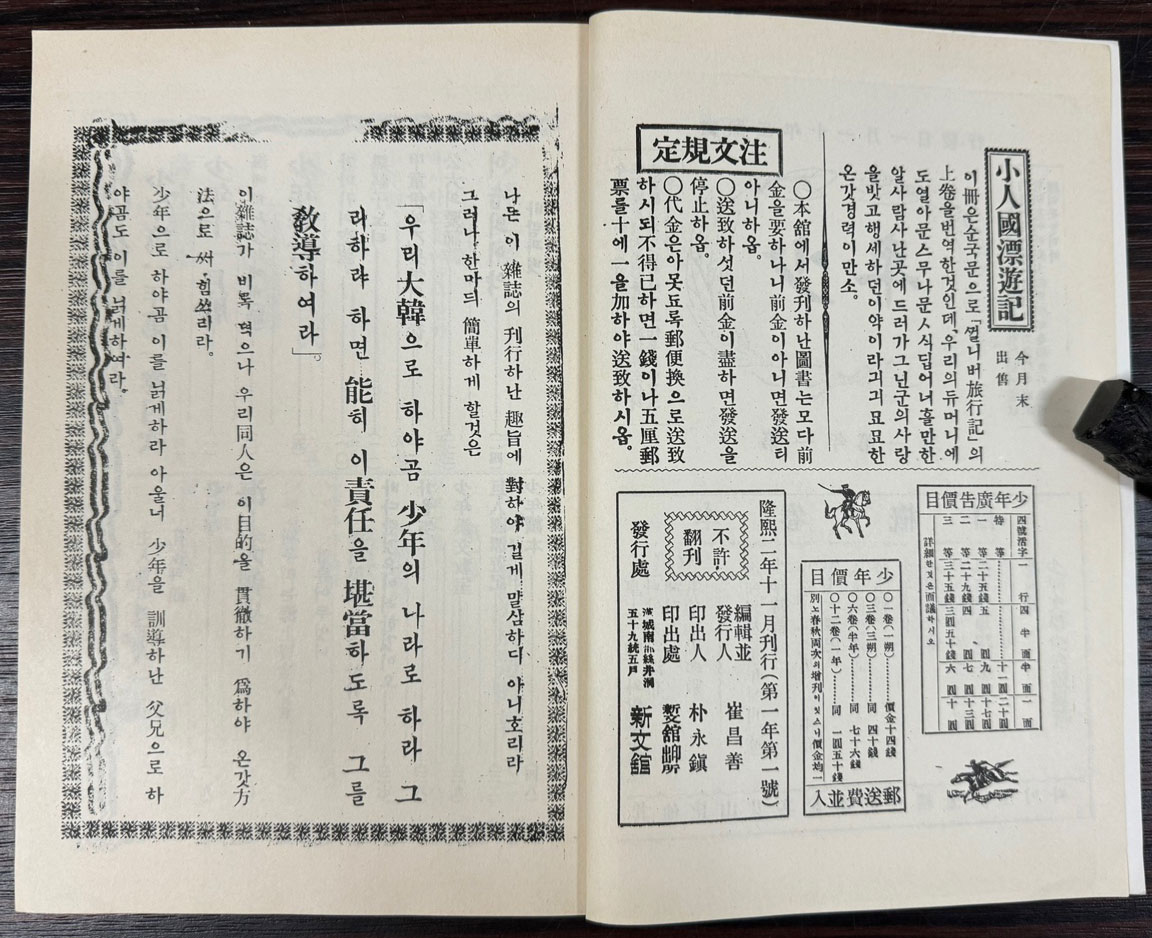 小人國漂遊記
今月末
出售
이冊은순국문으로「껄니버旅行記」의
上卷을번역한것인데、우리의듀머니에
도열아문스무나문人식딥어너흘만한
알사람사난곳에드러가그닌군의사랑
을밧고行세하던이약이라긔긔묘묘한
온갓경력이만소。
注文規定
〇本舘에서發刊하난圖書는모다前
金을要하나니前金이아니면發送티
아니하옴。
〇送致하섯던前金이盡하면發送을
停止하옴。
〇代金은아못됴록郵便換으로送致
하시되不得已하면一錢이나五厘郵
票를十에一을加하야送致하시옴。
少年廣告價目
四號活字 一行 四半面 半面 一面
特等 十一圓 二十圓
一等 二十五錢 五圓 九圓 十七圓
二等 二十九錢 四圓 七圓 十三圓
三等 三十五錢 三圓五十錢 六圓 十圓
詳細한것은面議하시오
少年價目
〇一卷(一朔)………價金十四錢
〇三卷(三朔)………同 四十錢
〇六卷(半年)………同 七十六錢
〇十二卷(一年)………同 一圓五十錢
別노春秋兩次의增刊이잇스니價金均一
郵送費並入
隆熙二年十一月刊行(第一年第一號)
不許
翻刊
編輯並
發行人 崔昌善
印出人 朴永鎭
印出處
發行處
漢城南部絲井洞
五十九統五戶
新文舘
나는 이 雜誌의 刊行하난 趣旨에 對하야 길게 말삼하디 아니호리라
그러나 한마듸 簡單하게 할것은
「우리大韓으로 하야곰 少年의 나라로 하라 그
리하랴 하면 能히 이 責任을 堪當하도록 그를
敎導하여라」。
이雜誌가 비록 뎍으나 우리同人은 이目的을 貫徹하기 爲하야 온갓方
法으로 써 힘쓰리라。
少年으로 하야곰 이를 닑게하라 아울너 少年을 訓導하난 父兄으로 하
야곰도 이를 닑게하여라。